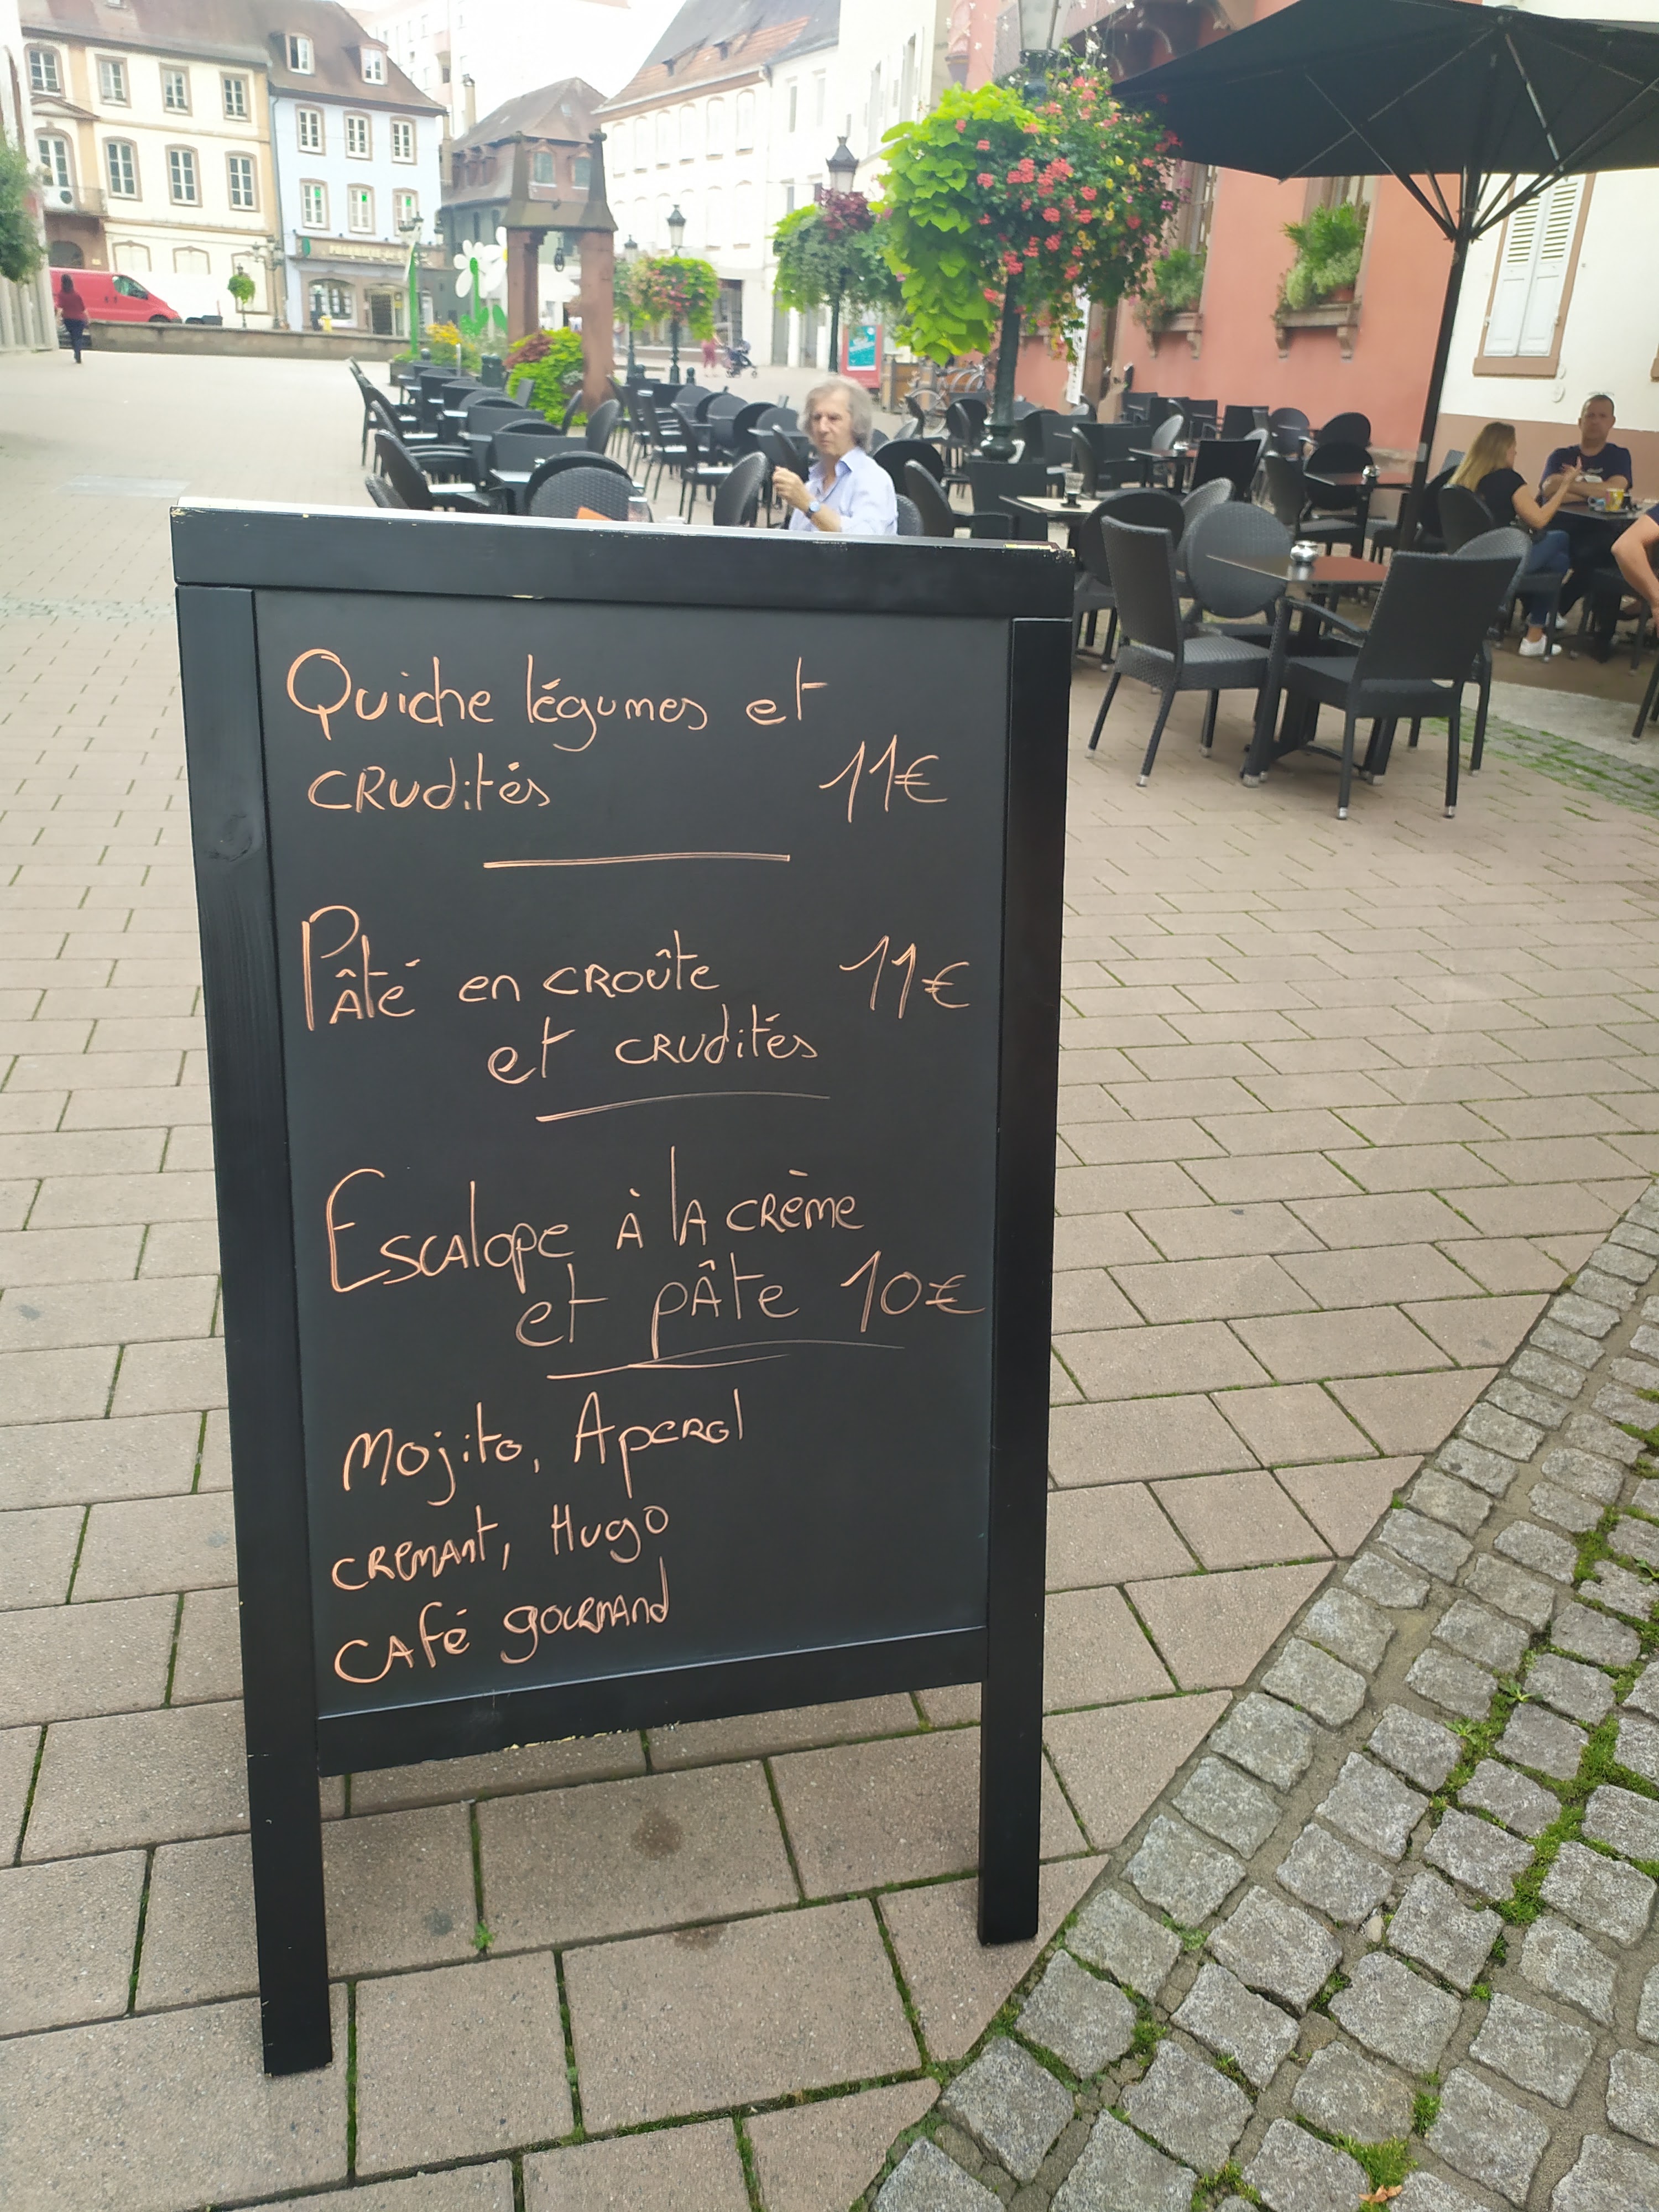 Quiche légumes et
crudités 11€
Pâté en croûte 11€
et crudités
Escalope à la crème
et pâte 10€
Mojito, Aperol
cremant, Hugo
café gourmand